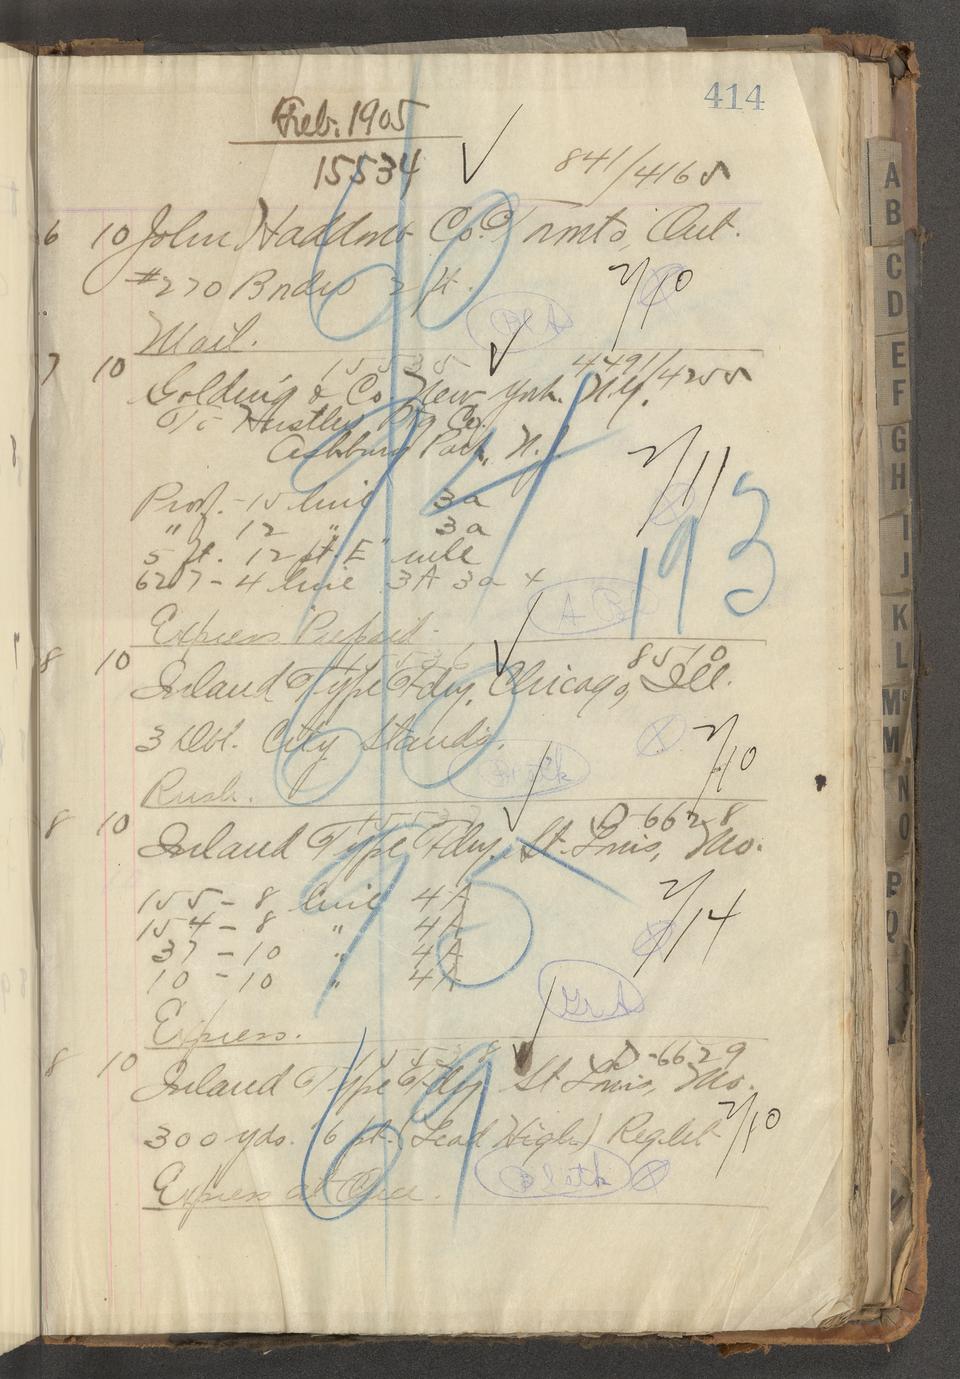 414
Feb. 1905
15534
841/4165
6 10 John Haddon & Co. Tronto, Ont.
#270 Bndrs 2 ft.
2/10
Mail.
15535
4491/4255
7 10 Golding & Co New York. N.Y.
To Hustler Ptg Co.
Ashbury Park, N.J.
2/11
Prof. - 15 line 3a
" 12 " 3a
5 ft. 12 pt. E" rule
6207 - 4 line 3A 3a x
193
Express Prepaid.
15536
8510
8 10 Inland Type Fdry, Chicago, Ill.
3 Dbl. City Stands.
2/10
Rush.
15537
D-6628
8 10 Inland Type Fdry. St. Louis, Mo.
155 - 8 line 4A
154 - 8 " 4A
37 - 10 " 4A
10 - 10 " 4A
2/14
75
Express.
15538
D-6629
8 10 Inland Type Fdry St Louis, Mo.
300 yds. 6 pt. (Lead High) Reglet
2/10
69
Express at Once.
A
B
C
D
E
F
G
H
I
J
K
L
Mc
M
N
O
P
Q